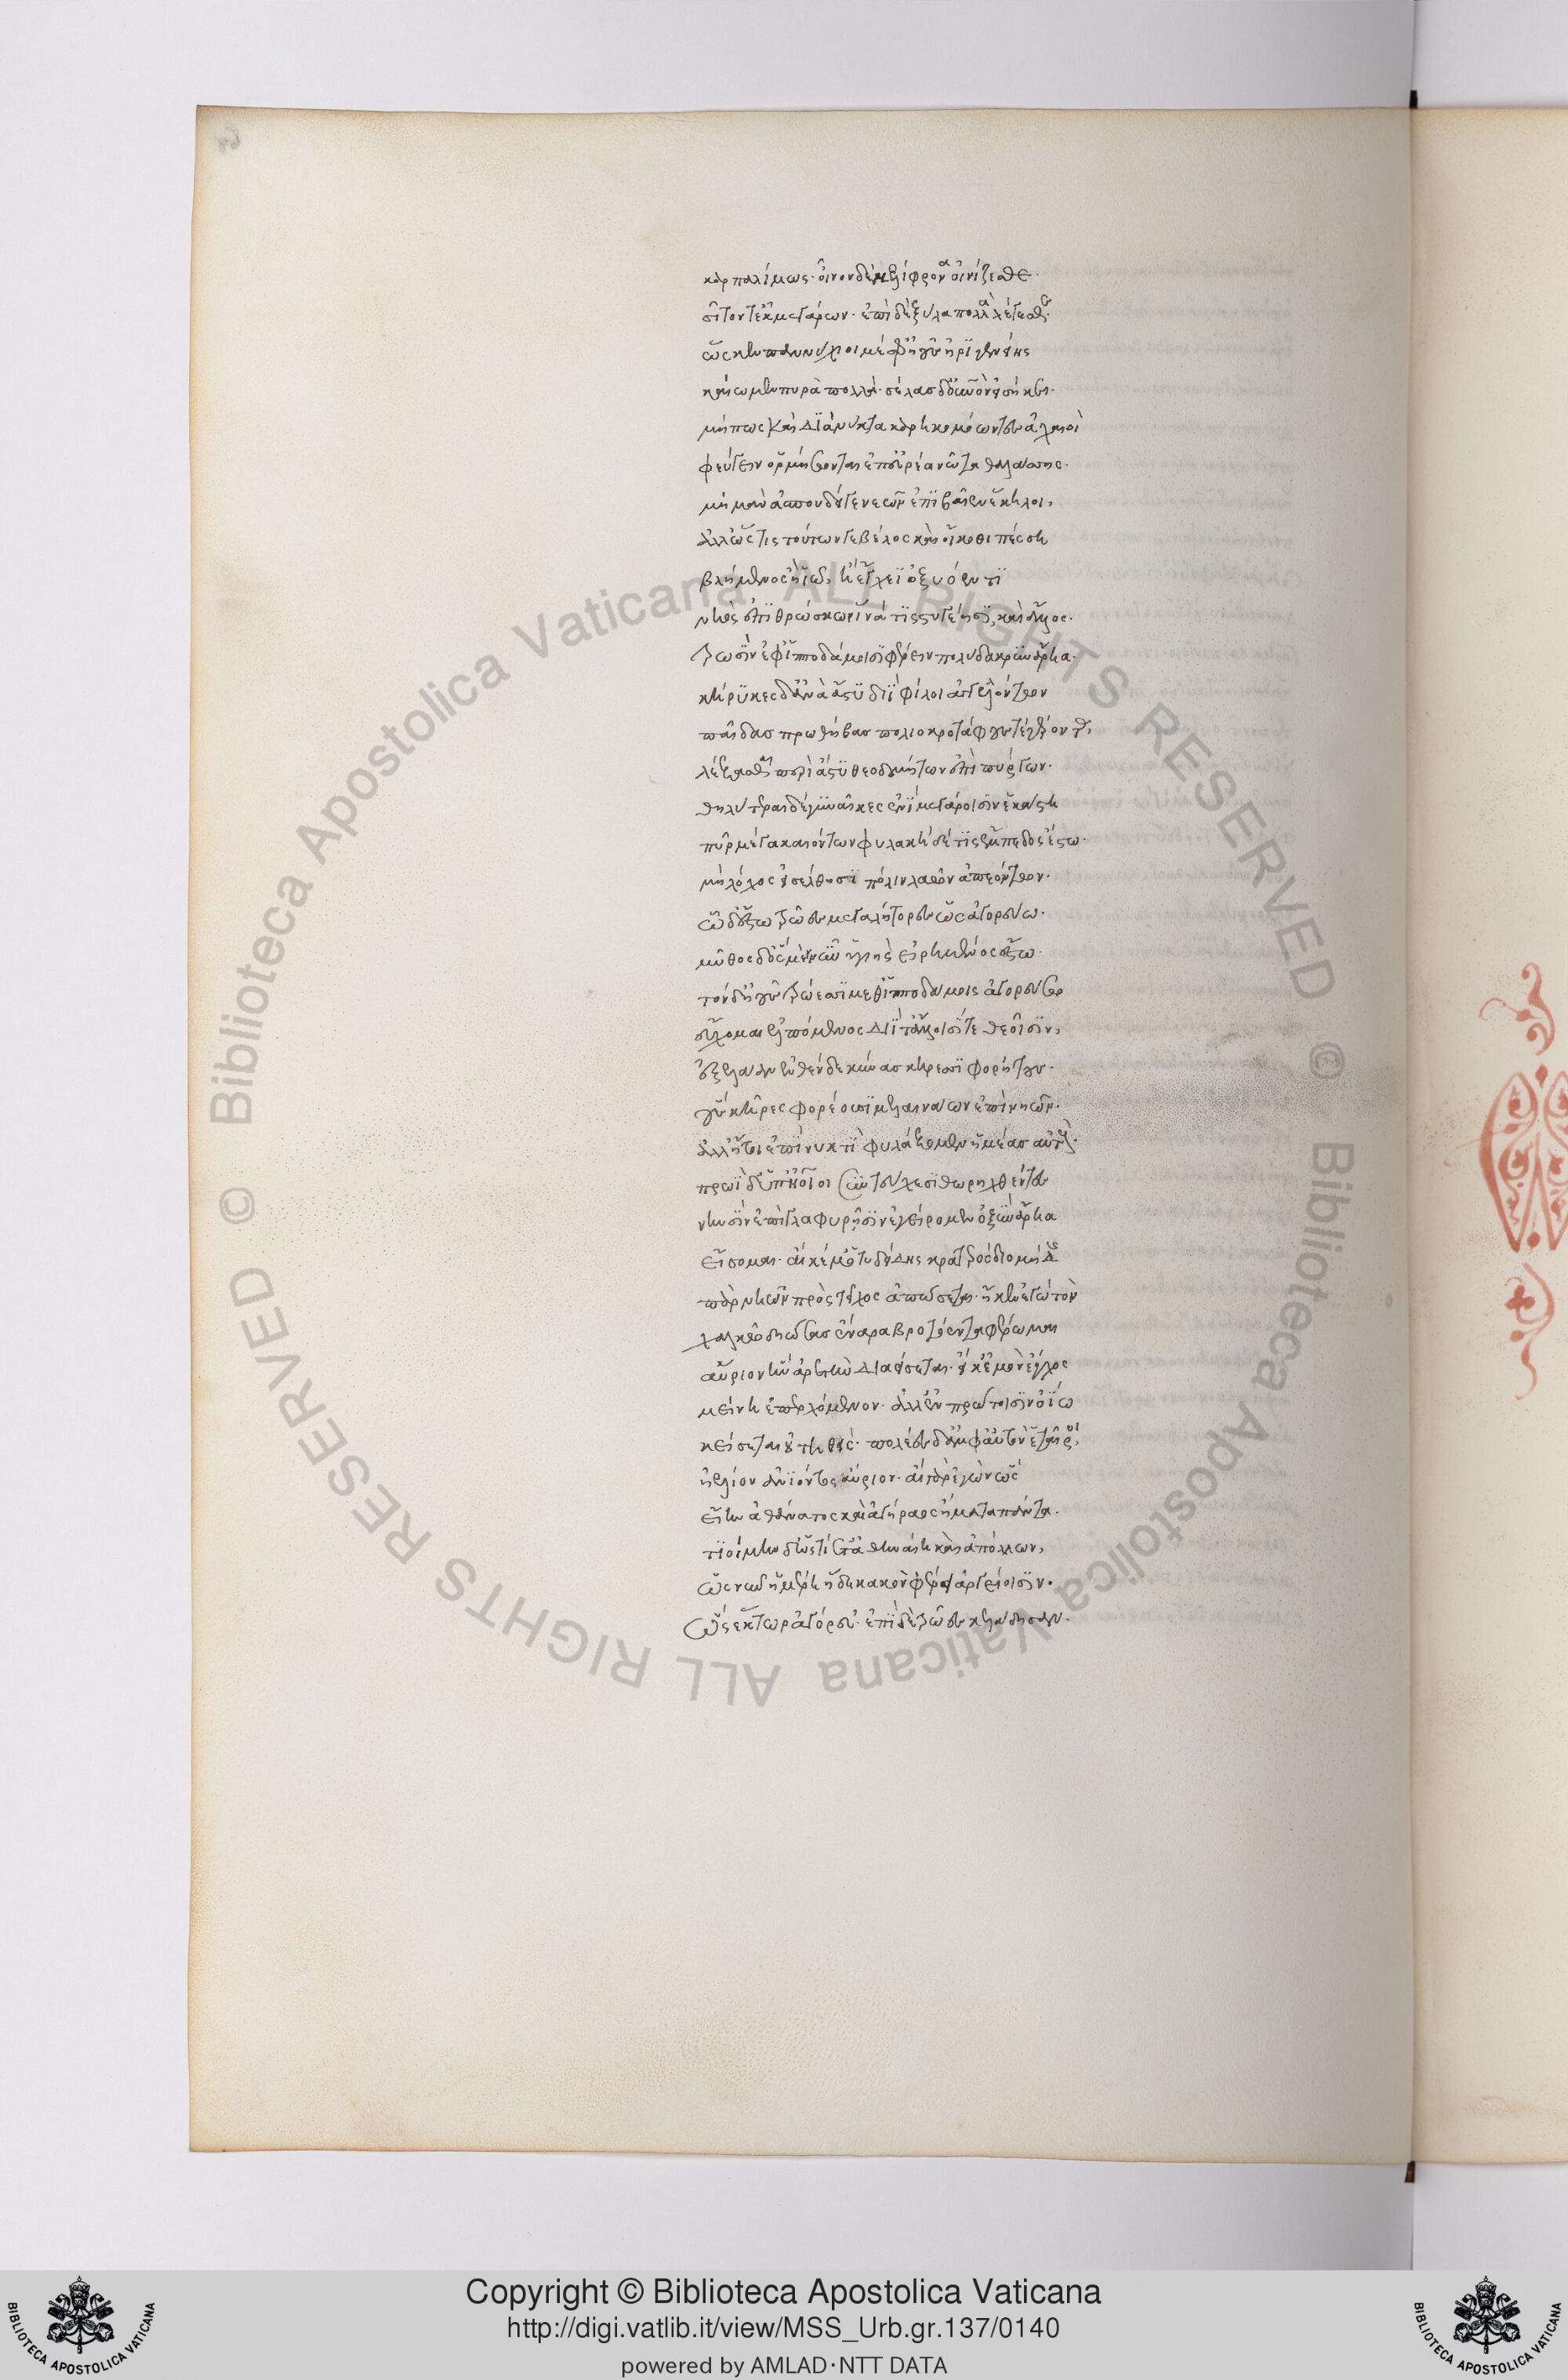 καρπαλίμως· οἶνον δὲ μελίφρονα οἰνίζεσθε·
σῖτόν τ' ἐκ μεγάρων· ἐπὶ δὲ ξύλα πολλὰ λέγεσθε·
ὥς κεν παννύχιοι μέσφ' ἠοῦς ἠριγενείης
καίωμεν πυρὰ πολλά· σέλας δ' εἰς οὐρανὸν ἥκει·
μήπως καὶ διὰ νύκτα καρηκομόωντες ἀχαιοὶ
φεύγειν ὁρμήσονται ἐπ' εὐρέα νῶτα θαλάσσης·
μὴ μὰν ἀσπουδίγε νεῶν ἐπιβαῖεν ἕκηλοι,
ἀλλ' ὥς τις τούτων γε βέλος καὶ οἴκοθι πέσσῃ
βλήμενος ἢ ἰῷ, ἢ ἔγχεϊ ὀξυόεντι
νηὸς ἐπιθρώσκων ἵνα τις στυγέῃσι καὶ ἄλλος·
τρωσὶν ἐφ' ἱπποδάμοισι φέρειν πολύδακρυν ἄρηα·
κήρυκες δ' ἀνὰ ἄστυ διῒ φίλοι ἀγγελλόντων
παῖδας πρωθήβας πολιοκροτάφους τε γέροντας,
λέξασθαι περὶ ἄστυ θεοδμήτων ἐπὶ πύργων·
θηλύτεραι δὲ γυναῖκες ἐνὶ μεγάροισιν ἑκάστη
πῦρ μέγα καιόντων φυλακὴ δέ τις ἔμπεδος ἔστω·
μὴ λόχος εἰσέλθησι πόλιν λαῶν ἀπεόντων·
ὧδ' ἔστω τρῶες μεγαλήτορες ὡς ἀγορεύω·
μῦθος δ' ὃς μὲν νῦν ὑγιὴς εἰρημένος ἔστω·
τὸν δ' ἠοῦς τρώεσσι μεθ' ἱπποδάμοις ἀγορεύσω
εὔχομαι ἐλπόμενος Διΐ τ' ἄλλοισίν τε θεοῖσιν,
ἐξελάαν ἐνθένδε κύνας κηρεσσιφορήτους·
οὓς κῆρες φορέουσι μελαινάων ἐπὶ νηῶν·
ἀλλ' ἤτοι ἐπὶ νυκτὶ φυλάξομεν ἡμέας αὐτούς·
πρωῒ δ' ὑπηοῖοι σὺν τεύχεσι θωρηχθέντες
νηυσὶν ἐπὶ γλαφυρῇσιν ἐγείρομεν ὀξὺν ἄρηα
εἴσομαι· αἴ κέ μ' ὁ τυδείδης κρατερὸς διομήδης
πὰρ νηῶν πρὸς τεῖχος ἀπώσεται· ἤ κεν ἐγὼ τὸν
χαλκῷ δηώσας ἔναρα βροτόεντα φέρωμαι
αὔριον ἣν ἀρετὴν διαείσεται· εἴ κ' ἐμὸν ἔγχος
μείνῃ ἐπερχόμενον· ἀλλ' ἐν πρώτοισιν ὀΐω
κείσεται οὐτηθείς· πολέες δ' ἀμφ' αὐτὸν ἑταῖροι,
ἠελίου ἀνιόντος αὔριον· αἲ γὰρ ἐγὼν ὣς
εἴην ἀθάνατος καὶ ἀγήραος ἤματα πάντα·
τιοίμην δ' ὡς τίετ' ἀθηναίη καὶ ἀπόλλων,
ὡς νῦν ἡμέρη ἥδε κακὸν φέρει ἀργείοισιν·
Ὣς ἕκτωρ ἀγόρευ'· ἐπὶ δὲ τρῶες κελάδησαν·
Copyright © Biblioteca Apostolica Vaticana
http://digi.vatlib.it/view/MSS_Urb.gr.137/0140
powered by AMLAD·NTT DATA
BIBLIOTECA APOSTOLICA VATICANA
BIBLIOTECA APOSTOLICA VATICANA
© Biblioteca Apostolica Vaticana ALL RIGHTS RESERVED
© Biblioteca Apostolica Vaticana ALL RIGHTS RESERVED